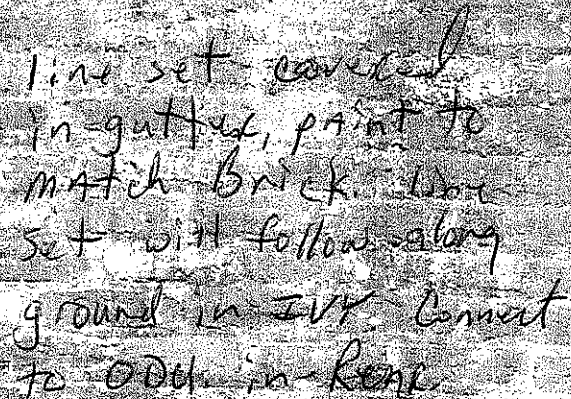 line set covered
in gutter, paint to
match Brick. Line
set will follow along
ground in IVY Connect
to ODU in Rear